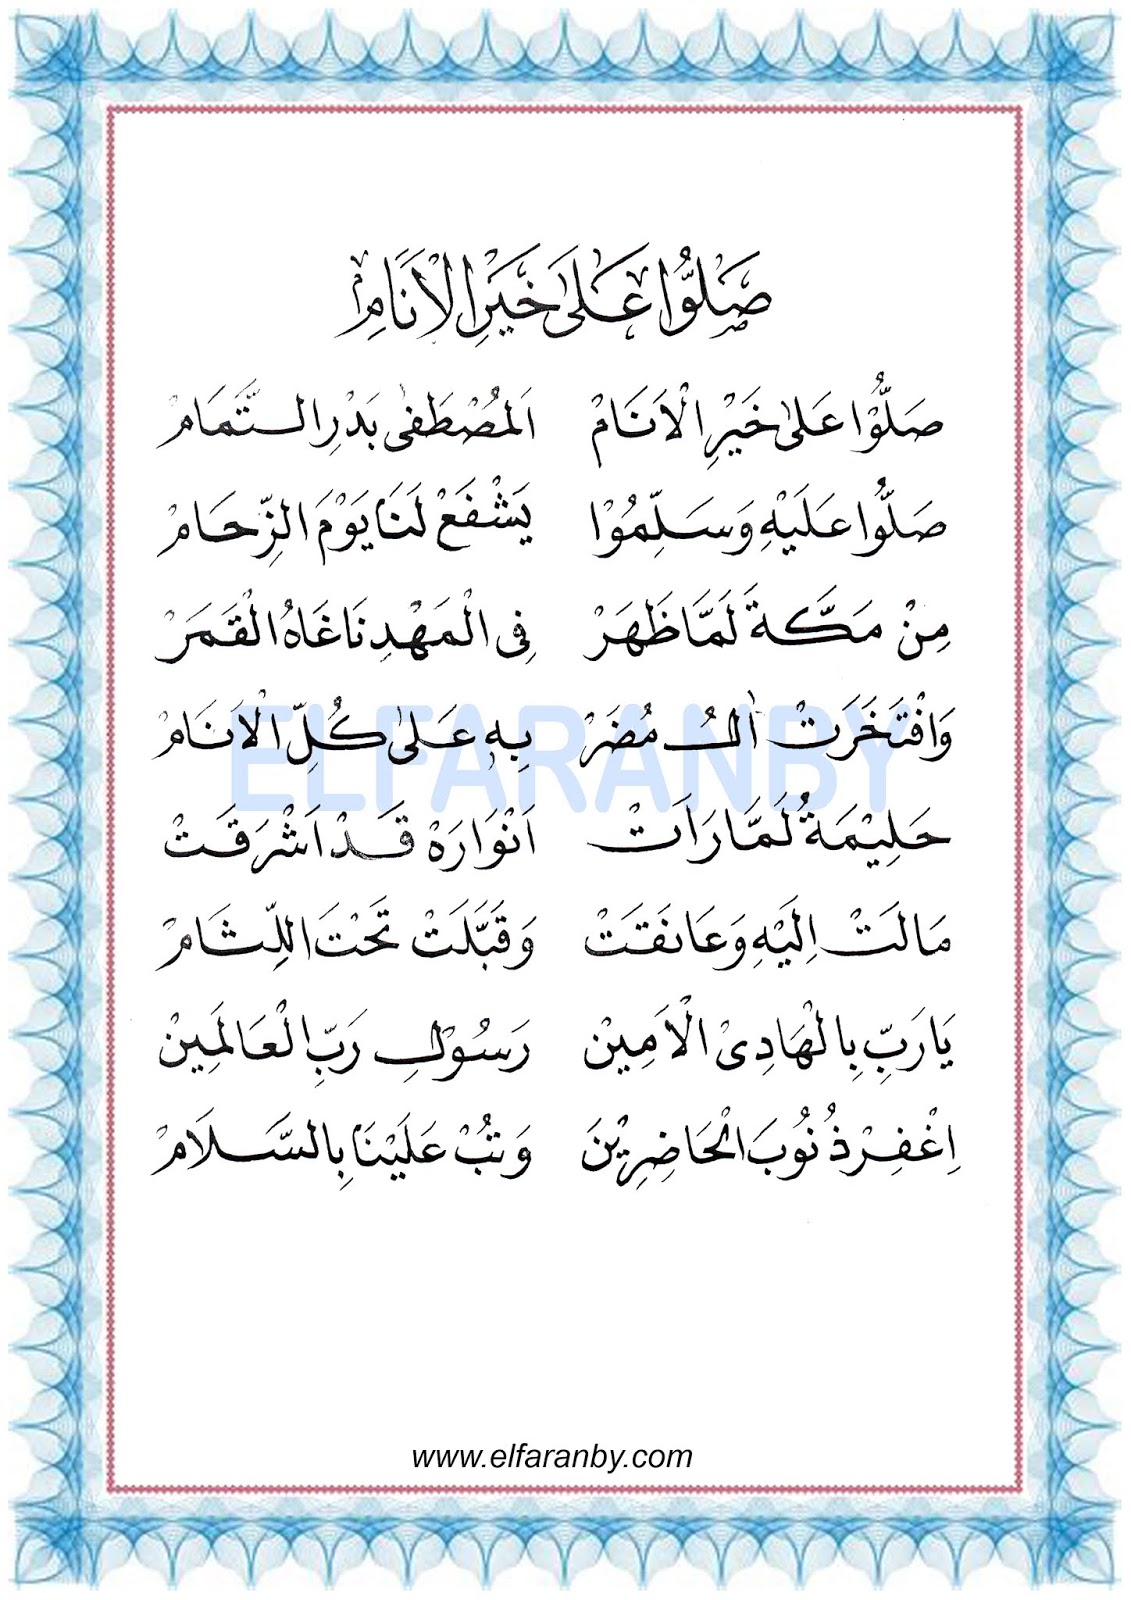 صَلُّوا عَلَىٰ خَيْرِ الْاَنَامِ
صَلُّوْا عَلىٰ خَيْرِ الْاَنَامْ اَلمُصْطَفٰى بَدْرِ التَّمَامْ
صَلُّوا عَلَيْهِ وَسَلِّمُوْا يَشْفَعْ لَنَا يَوْمَ الزِّحَامْ
مِنْ مَكَّةَ لَمَّا ظَهَرْ فِى الْمَهْدِ نَاغَاهُ الْقَمَرْ
وَافْتَخَرَتْ اٰلُ مُضَرْ بِهٖ عَلىٰ كُلِّ الْاَنَامْ
حَلِيْمَةُ لَمَّا رَاَتْ اَنْوَارَهْ قَدْ اَشْرَقَتْ
مَالَتْ اِلَيْهِ وَعَانَقَتْ وَقَبَّلَتْ تَحْتَ اللِّثَامْ
يَارَبِّ بِالْهَادِىْ الْاَمِيْنْ رَسُوْلِ رَبِّ الْعَالَمِيْنْ
اِغْفِرْ ذُنُوْبَ الْحَاضِرِيْنَ وَتُبْ عَلَيْنَا بِالسَّلَامْ
ELFARANBY
www.elfaranby.com